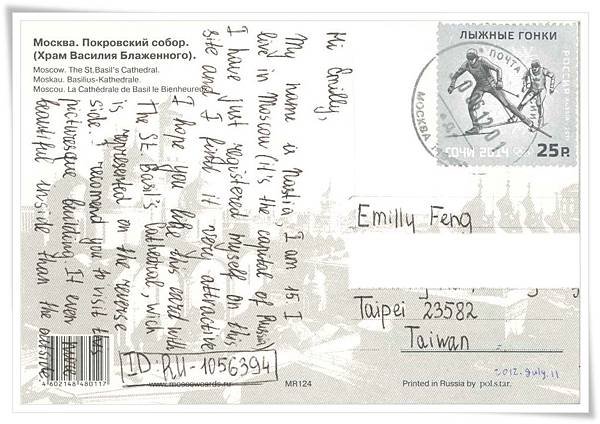 Москва. Покровский собор.
(Храм Василия Блаженного).
Moscow. The St.Basil's Cathedral.
Moskau. Basilius-Kathedrale.
Moscou. La Cathédrale de Basil le Bienheureux.
Hi Emilly,
My name is Nastia, I am 15 I
live in Moscow (it's the capital of Russia)
I have just registered myself on this
site and I find it very attractive
I hope you like this card with
The St. Basil's Cathedral, wich
is represented on the reverse
side. I recomend you to visit this
picturesque building It even more
beautiful inside than the outside.
ID: RU-1056394
ЛЫЖНЫЕ ГОНКИ
РОССИЯ
25 Р.
ПОЧТА
МОСКВА
Emilly Feng
Taipei 23582
Taiwan
2012.July.11
4 602148 480117
www.moscowcards.ru
MR124
Printed in Russia by pol.star.